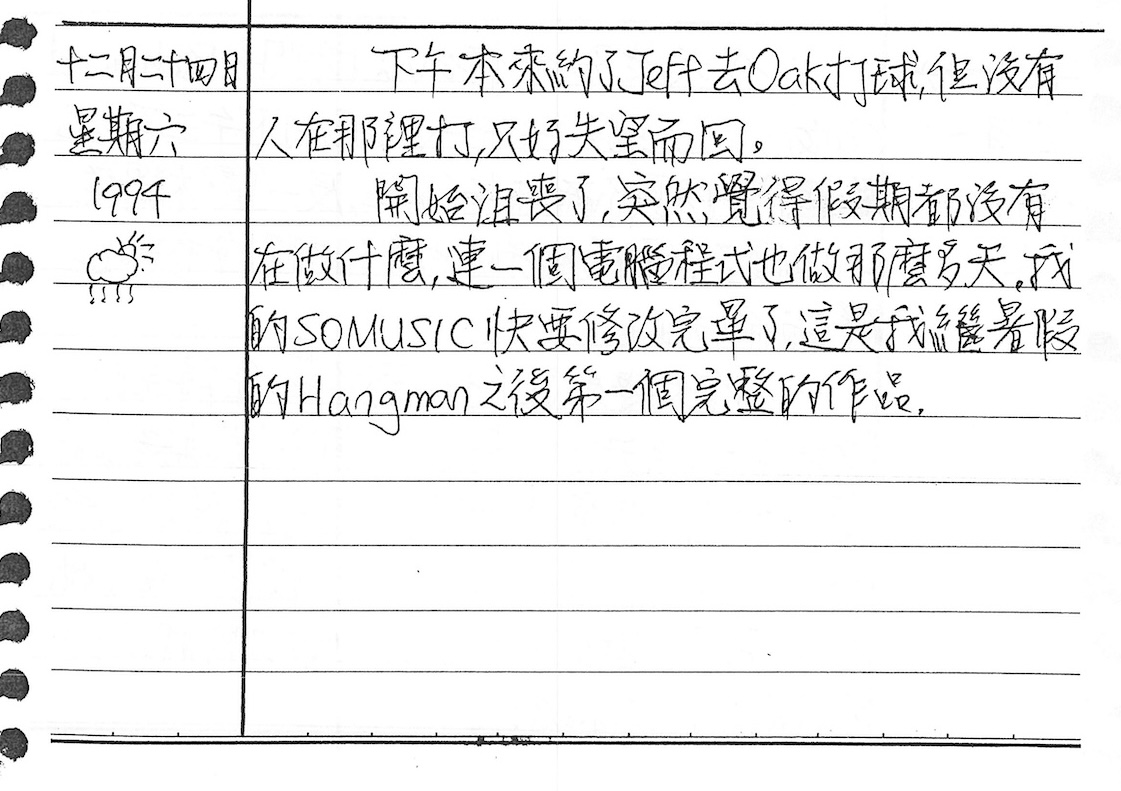 十二月二十四日
星期六
1994
下午本來約了Jeff去Oak打球,但沒有
人在那裡打,只好失望而回。
開始沮喪了,突然覺得假期都沒有
在做什麼,連一個電腦程式也做那麼多天。我
的SOMUSIC快要修改完畢了,這是我繼暑假
的Hangman之後第一個完整的作品.